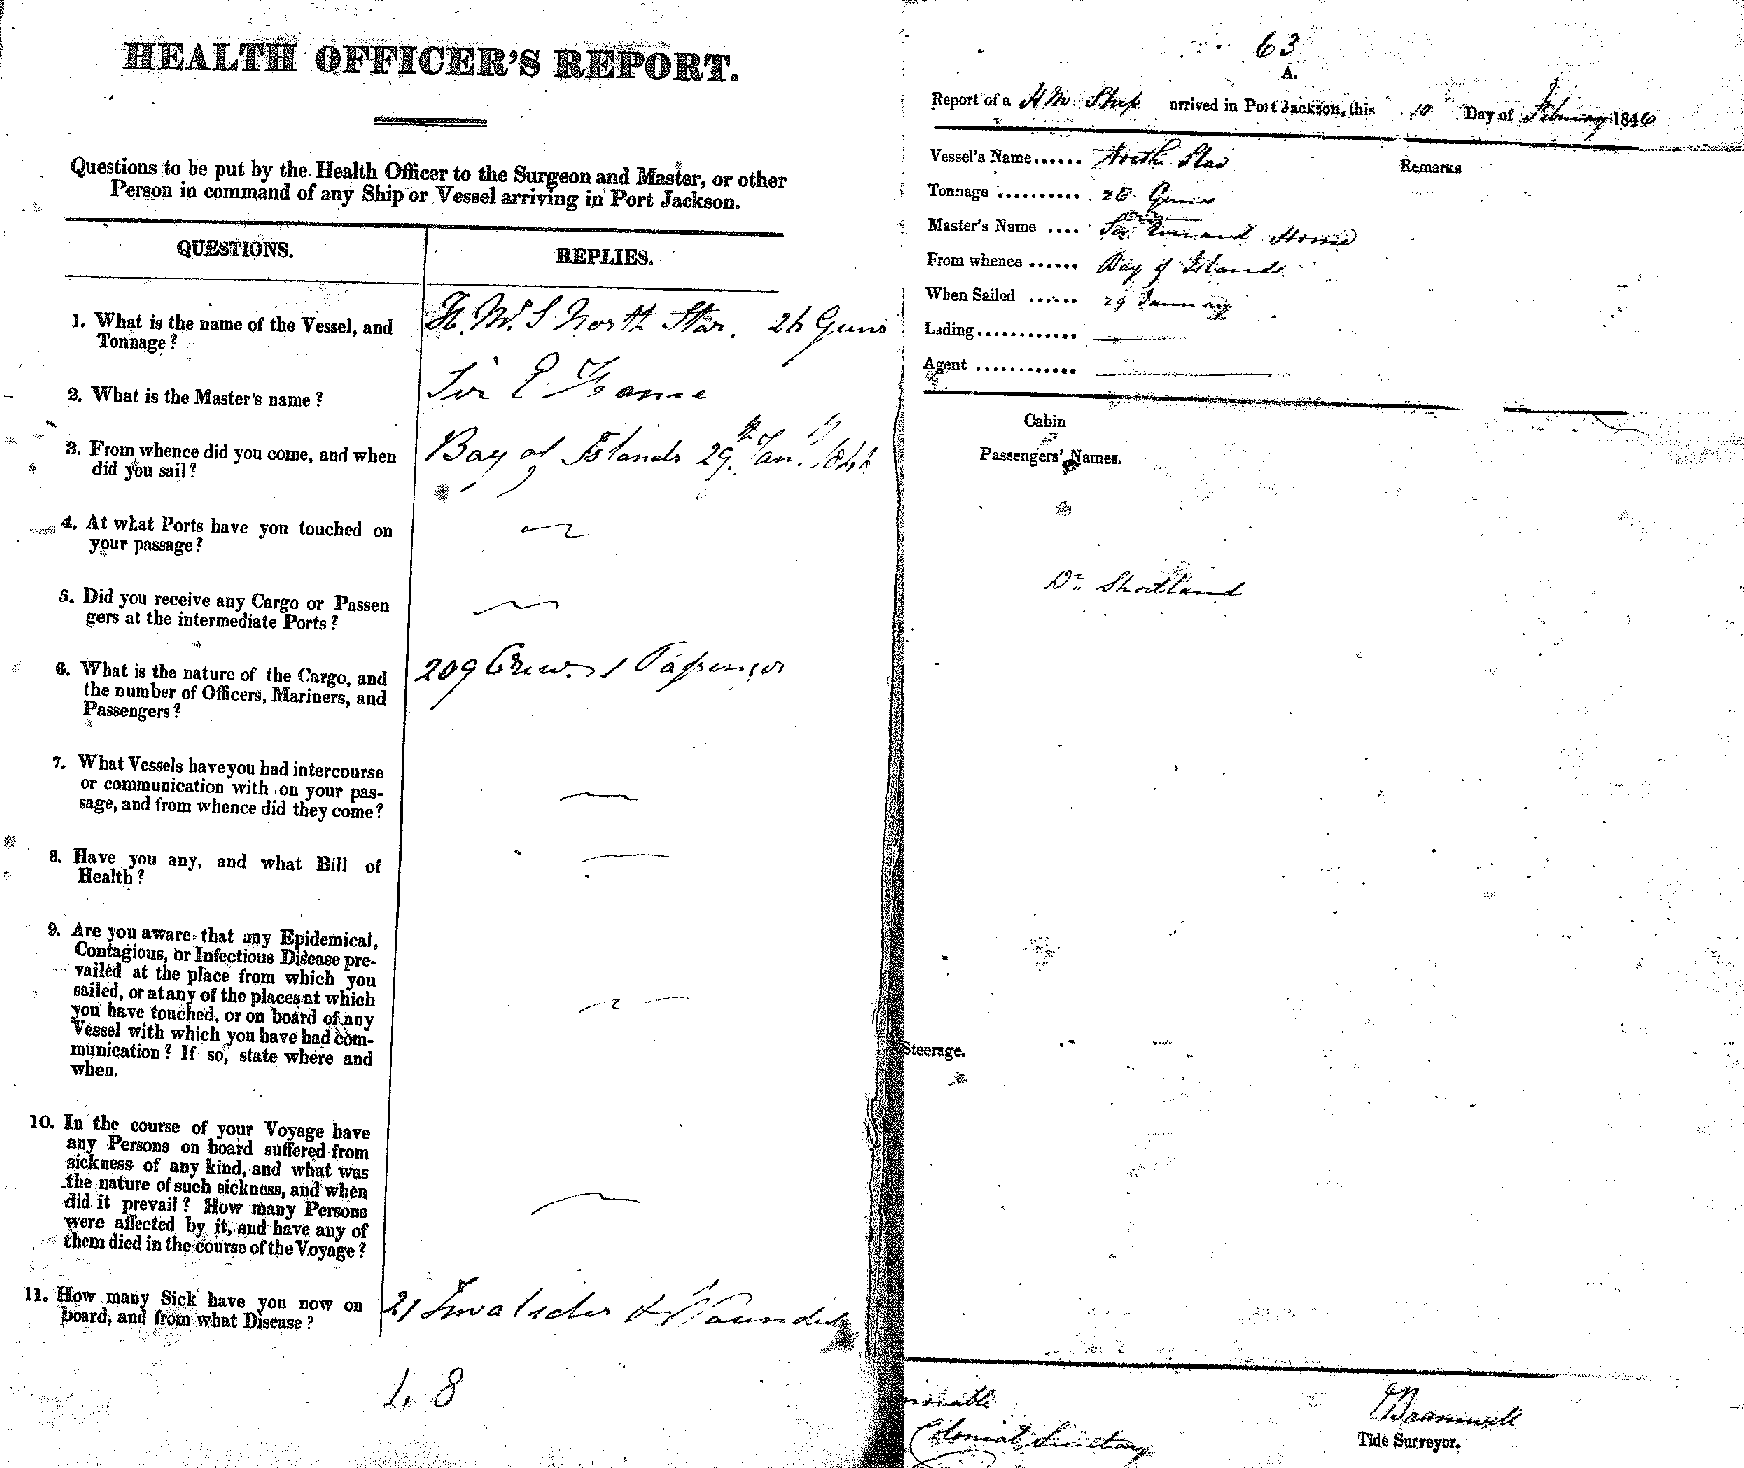 HEALTH OFFICER'S REPORT.
Questions to be put by the Health Officer to the Surgeon and Master, or other
Person in command of any Ship or Vessel arriving in Port Jackson.
QUESTIONS.
REPLIES.
1. What is the name of the Vessel, and
Tonnage?
H.M.S North Star. 26 Guns
2. What is the Master's name?
Sir E Home
3. From whence did you come, and when
did you sail?
Bay of Islands 29th Jany. 1846
4. At what Ports have you touched on
your passage?
5. Did you receive any Cargo or Passen
gers at the intermediate Ports?
6. What is the nature of the Cargo, and
the number of Officers, Mariners, and
Passengers?
209 Crew 1 Passenger
7. What Vessels have you had intercourse
or communication with on your pas-
sage, and from whence did they come?
8. Have you any, and what Bill of
Health?
9. Are you aware that any Epidemical,
Contagious, or Infectious Disease pre-
vailed at the place from which you
sailed, or at any of the places at which
you have touched, or on board of any
Vessel with which you have had com-
munication? If so, state where and
when.
10. In the course of your Voyage have
any Persons on board suffered from
sickness of any kind, and what was
the nature of such sickness, and when
did it prevail? How many Persons
were affected by it, and have any of
them died in the course of the Voyage?
11. How many Sick have you now on
board, and from what Disease?
21 Invalides & Wounded
63
A.
Report of a H M Ship arrived in Port Jackson, this 10 Day of February 1846
Vessel's Name...... North Star
Remarks
Tonnage .......... 26 Guns
Master's Name .... Sir Everard Home
From whence ...... Bay of Islands
When Sailed ...... 29 January
Lading............
Agent ............
Cabin
Passengers' Names.
Dr Shortland
Steerage.
Colonial Secretary
Bramwell
Tide Surveyor.